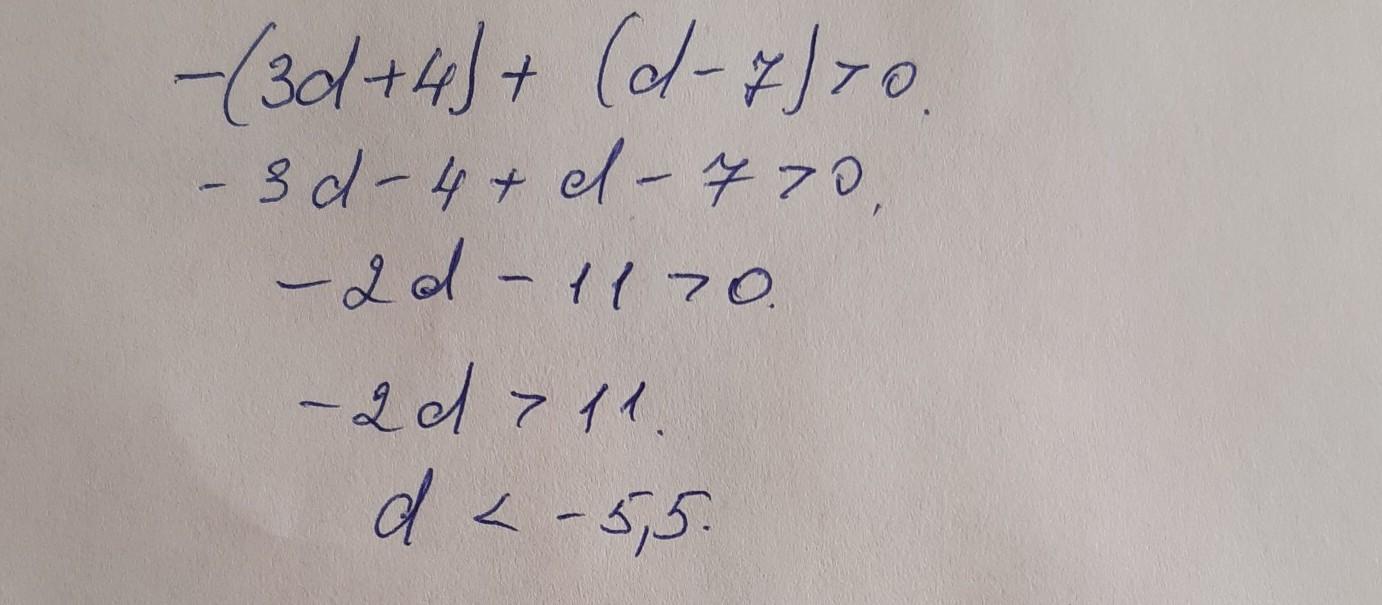 -(3d+4)+ (d-7)>0.
-3d-4+d-7>0,
-2d-11>0.
-2d>11.
d<-5,5.